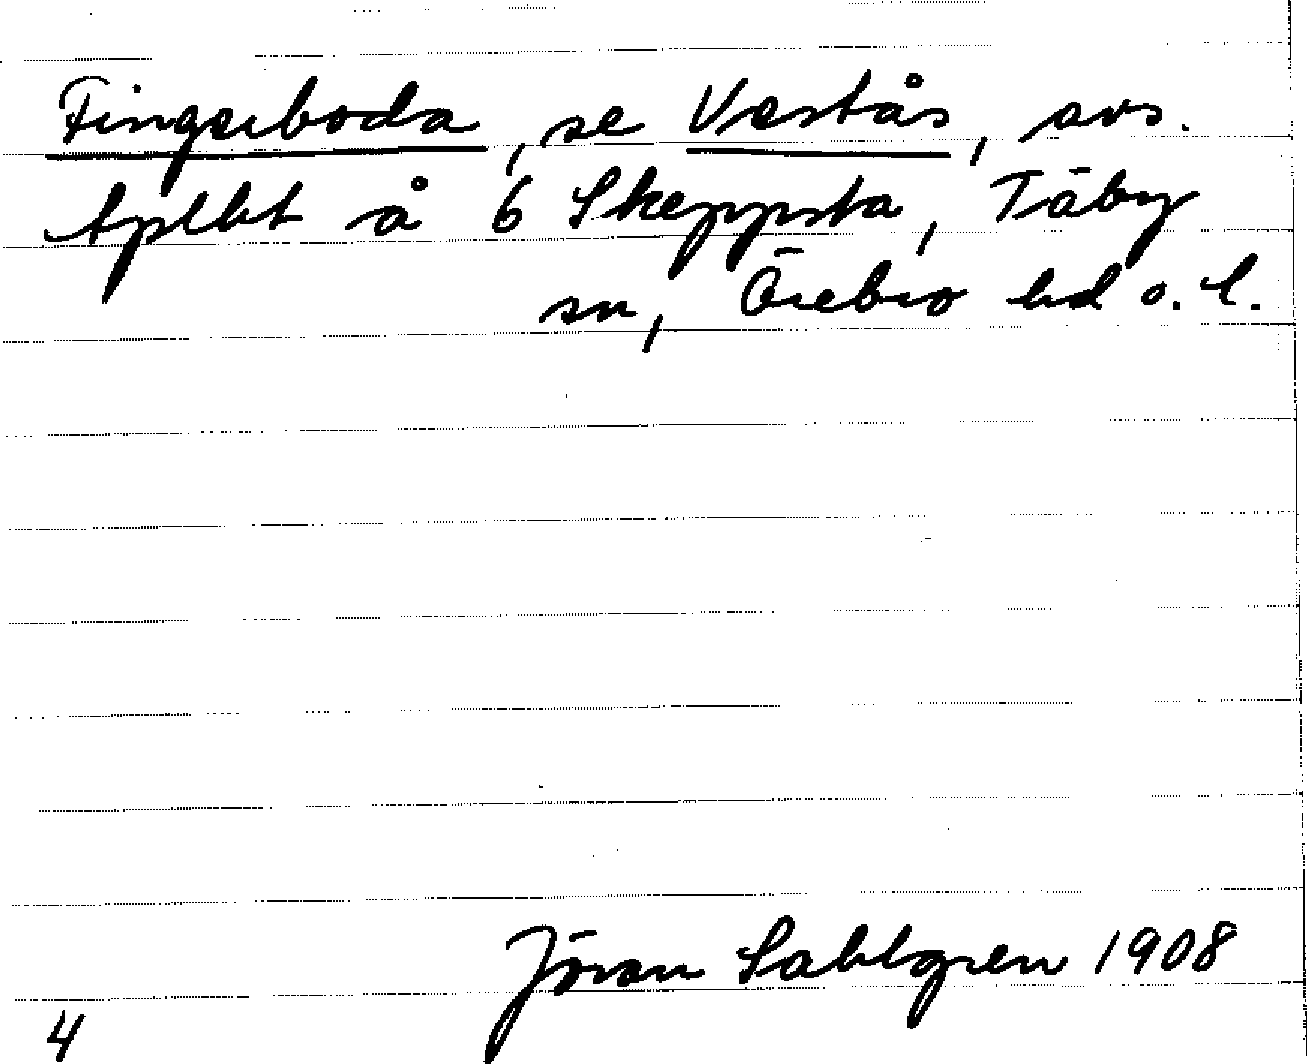 Fingerboda, se Västås, avs.
tpllkt å 6 Skeppsta, Täby
sn, Örebro hd o. l.
Jöran Sahlgren 1908
4